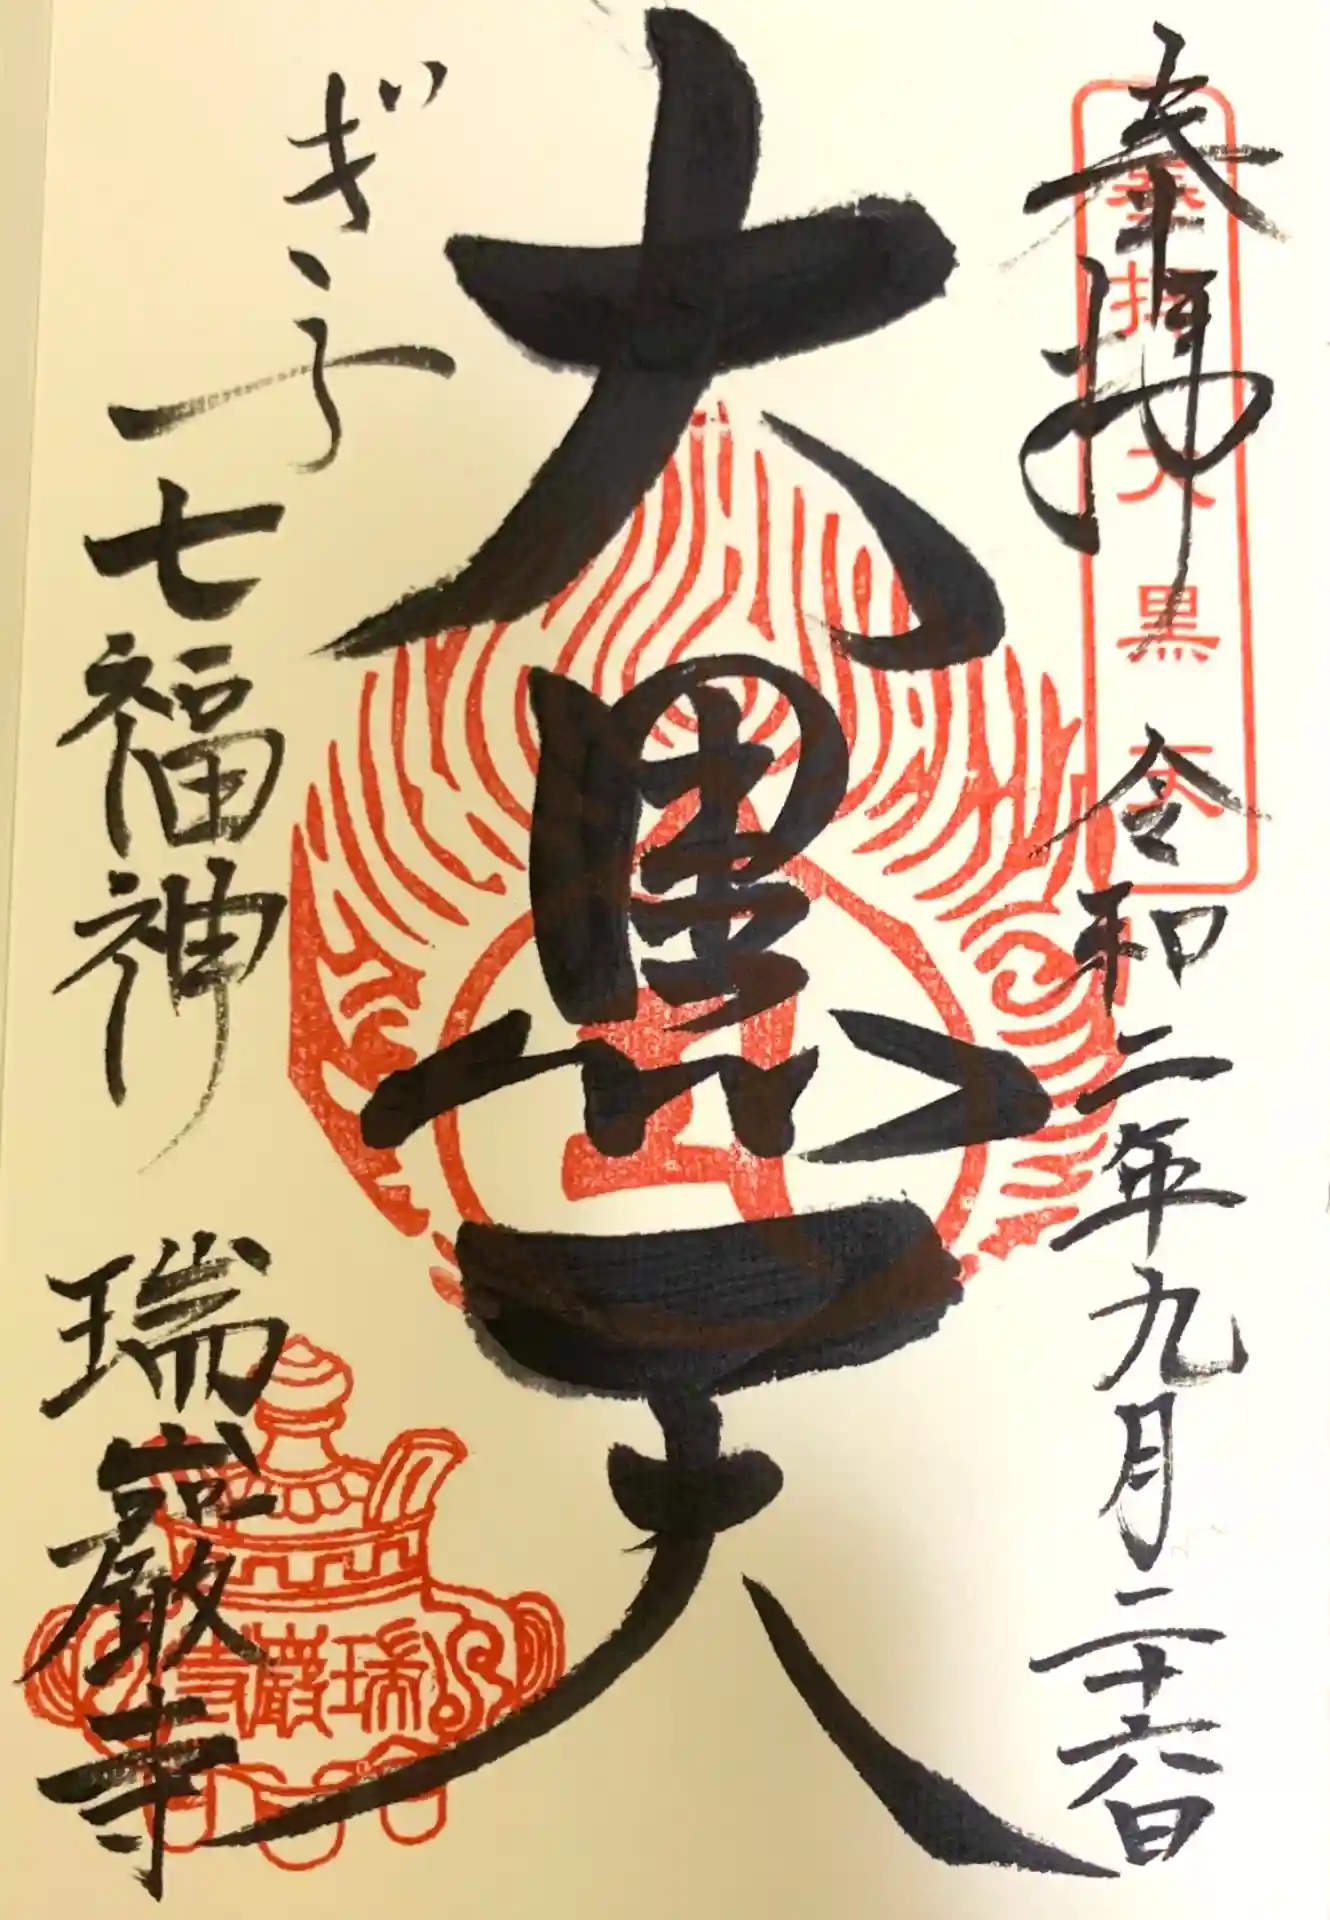 奉拝 令和二年九月二十六日
奉拝大黒天
大黒天
ぎふ七福神 瑞巌寺
瑞巖寺